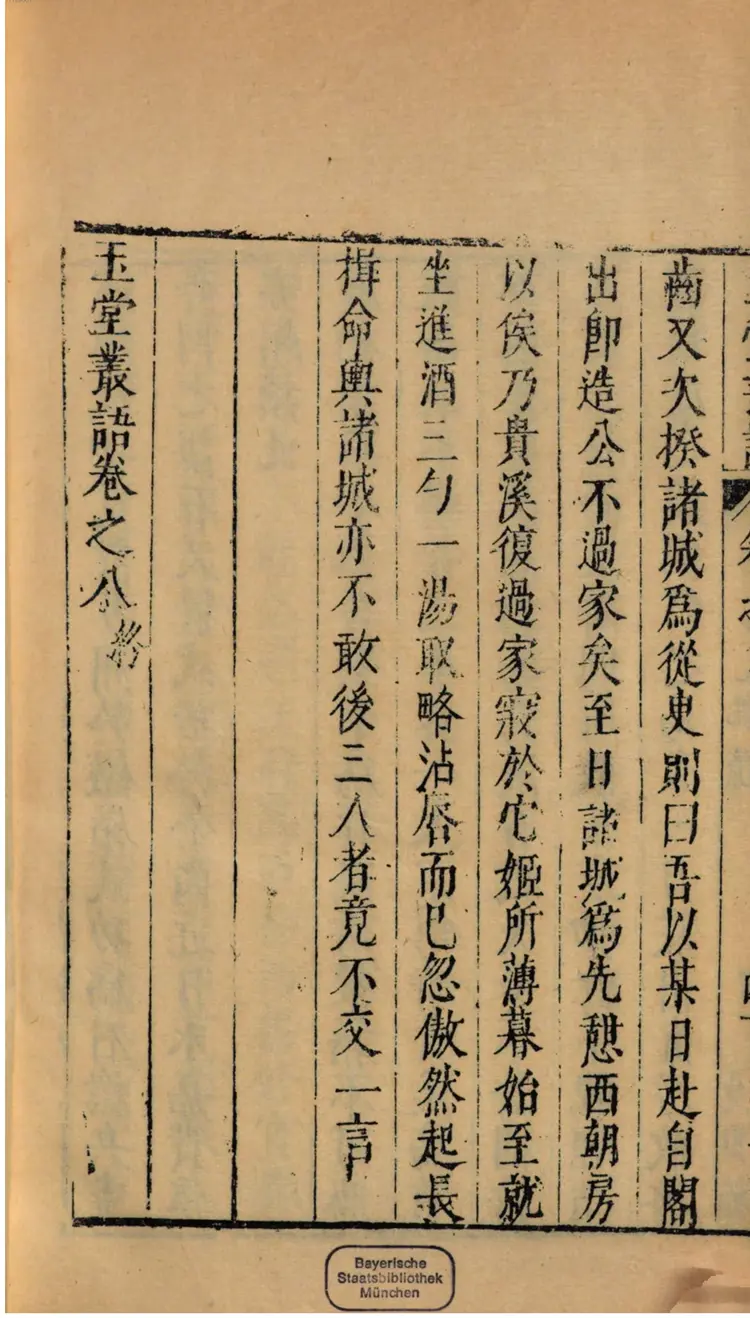 齒又次揆諸城爲從臾則曰吾以某日赴自閣
出卽造公不過家矣至日諸城爲先憇西朝房
以俟乃貴溪復過家寢於它姬所薄暮始至就
坐進酒三勺一湯取略沾唇而已忽傲然起長
揖命輿諸城亦不敢後三人者竟不交一言
玉堂叢語卷之八終
Bayerische
Staatsbibliothek
München